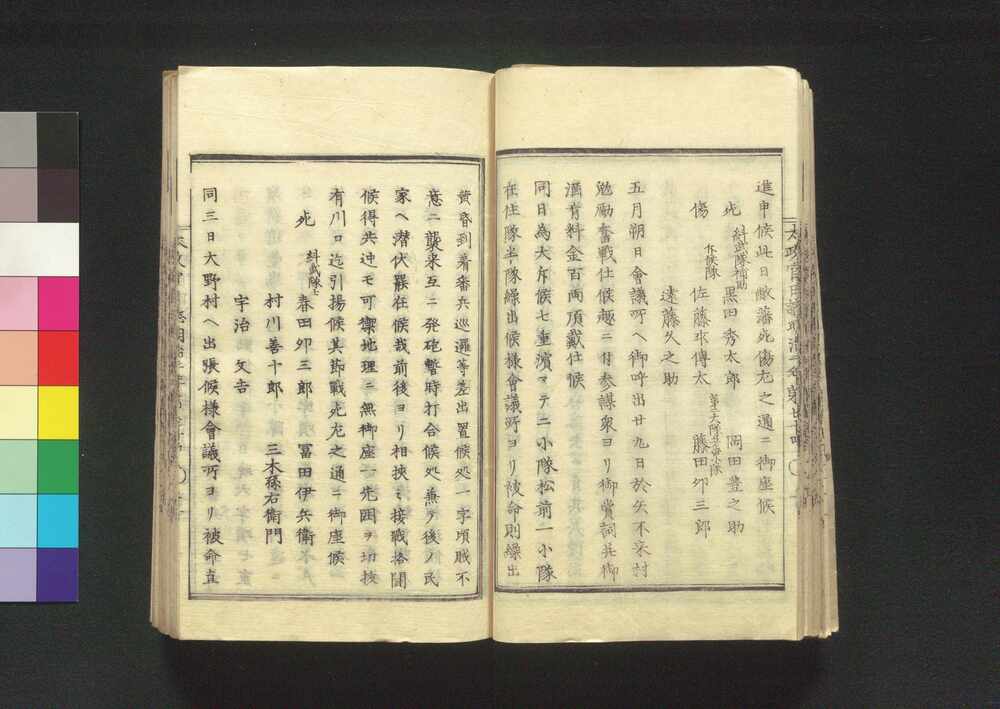 進申候此日敝藩死傷左之通ニ御座候
死 糾武隊補助 黒田秀太郎 岡田豊之助
傷 仝候隊 佐藤求傳太 第二大隊 藤田卯三郎
遠藤久之助
五月朔日會議所ヘ御呼出廿九日於矢不来村
勉励奮戰仕候趣ニ付参謀衆ヨリ御賞詞并御
酒肴料金百両頂戴仕候
同日為大斥候七重濱ヲテ二小隊松前一小隊
在住隊半隊繰出候様會議所ヨリ被命則繰出
黄昏到着番兵巡邏等差出置候処一字頃賊不
意ニ襲来互ニ発砲暫時打合候処兼テ後ノ民
家ヘ潜伏罷在候哉前後ヨリ相挾ミ接戰格闘
候得共迚モ可禦地理ニ無御座一先囲ヲ切抜
有川口迄引揚候其節戰死左之通ニ御座候
死 糾武隊 春田卯三郎 冨田伊兵衛
村川善十郎 三木孫右衛門
宇治文吉
同三日大野村ヘ出張候様會議所ヨリ被命直